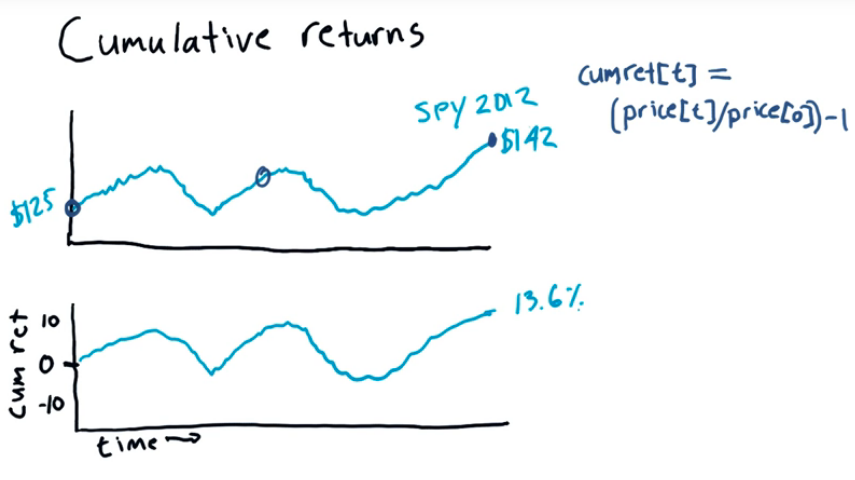 Cumulative returns
cumret[t] =
(price[t]/price[0])-1
SPY 2012
$142
$125
13.6%
cum ret
10
0
-10
time →